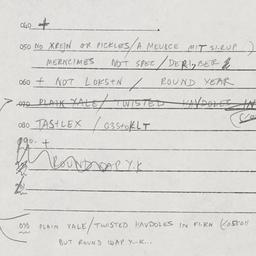 040 +
050 NO XREIN OR PICKLES/A MEUBCE MIT SIRUP)
MERNCIMES NOT SPEC/DERLBER &
060 + NOT LOKSTN / ROUND YEAR
070 PLAIN YALE/TWISTED HAVDOLES IN
080 TASTLEX / G3STOKLT
090 +
ROUND WAP Y.K
070 PLAIN YALE/TWISTED HAVDOLES IN FIRN
BUT ROUND WAP Y.K...